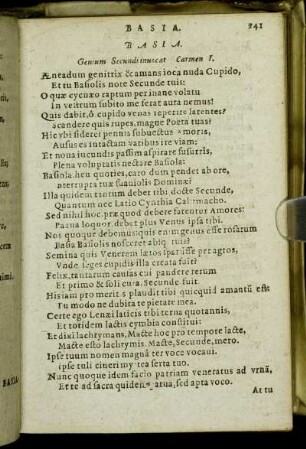 BASIA. 241
BASIA.
Genium Secundi invocat Carmen I.
Æneadum genitrix & camans ioca nuda Cupido,
Et tu Basiolis note Secunde tuis:
O quæ cycnæo raptum per inane volatu
In vestrum subito me ferat aura nemus!
Quis dabit, ô cupido venas reperire latentes?
Scandere quis rupes, magne Poeta tuas?
Hic vbi siderei pennis subuectus amoris,
Ausus es intactam vatibus ire viam;
Et nona iucundis passim aspirare susurris,
Plena voluptatis nectare Basiola:
Basiola heu quories, caro dum pendet ab ore,
nterrupta tuæ suaviolis Dominæ!
Illa quidem tantum debet tibi docte Secunde,
Quantum nec Latio Cynthia Callimacho.
Sed nihil hoc, præ quod debere fatentur Amores:
Parua loquor, debet plus Venus ipsa tibi.
Nos quoque debemus, quis enim genus esse rosarum
Basia Basiolis nosceret absq; tuis?
Semina quis Venerem lætos spar isse per agros,
Vnde seges cupidis illa creata fuit?
Felix, tantarum causas cui pandere rerum
Et primo & soli cura, Secunde fuit.
His iam pro merit s plaudit tibi quicquid amantũ est
Tu modo ne dubita te pietate mea.
Certe ego Lenæi laticis tibi terna quotannis,
Et totidem lactis cymbia constitui:
Et dixi lachrymans, Macte hoc pro tempore lacte,
Macte esto lachrymis. Macte, Secunde, mero.
Ipse tuum nomen magnâ ter voce vocaui.
ipse tuli cineri my tea serta tuo.
Nunc quoque idem facio patriam veneratus ad vrnã,
Et te ad sacra quidem parua, sed apta voco.
At tu
BASIA